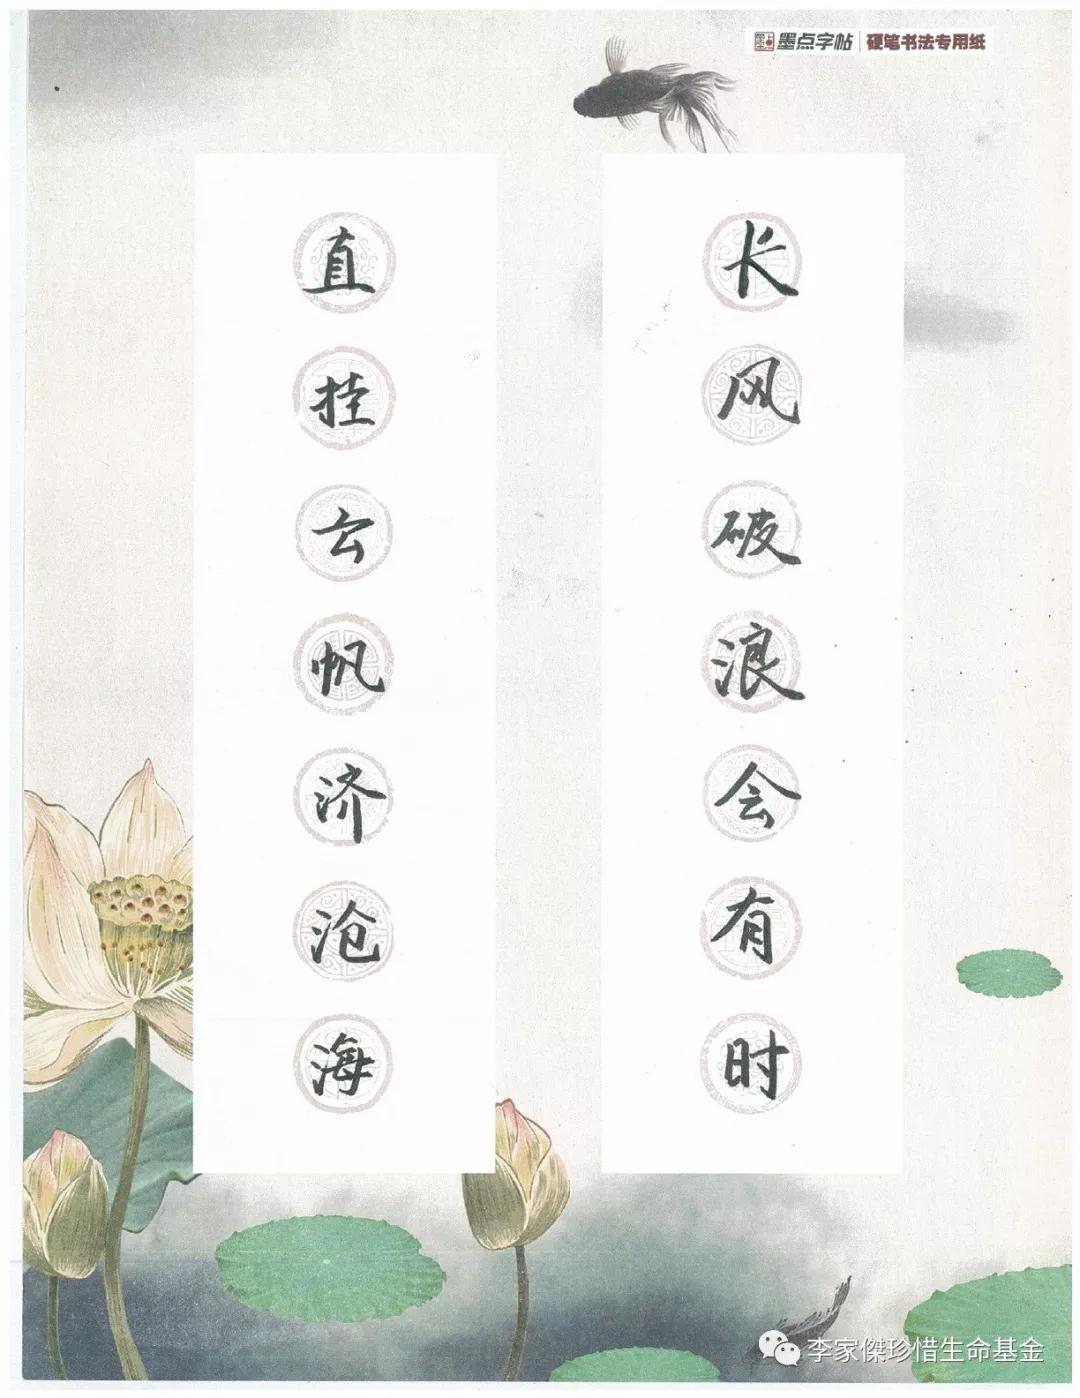 墨点字帖 硬笔书法专用纸
长风破浪会有时
直挂云帆济沧海
李家傑珍惜生命基金